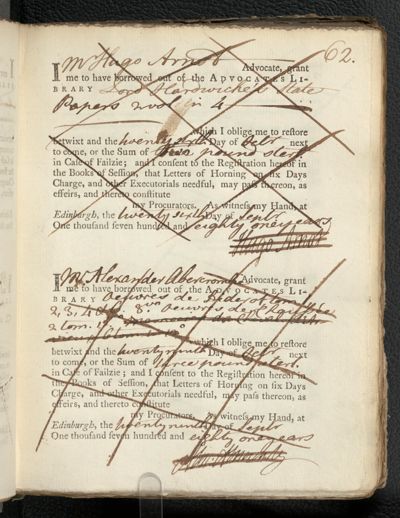 62.
I Mr Hugo Arnot Advocate, grant
me to have borrowed out of the ADVOCATES LI-
BRARY Lord Hardwicke's State
Papers 2 vol. in 4
which I oblige me to restore
betwixt and the twenty sixth Day of Octr next
to come, or the Sum of two pound ster.
in Case of Failzie; and I consent to the Registration hereof in
the Books of Session, that Letters of Horning on six Days
Charge, and other Executorials needful, may pass thereon, as
effeirs, and thereto constitute
my Procurators. As witness my Hand, at
Edinburgh, the twenty sixth Day of Septr
One thousand seven hundred and eighty one years
Hugo Arnot
I Mr Alexander Abercromby Advocate, grant
me to have borrowed out of the ADVOCATES LI-
BRARY Oeuvres de Diderot tom
2, 3, 4 8vo Oeuvres de
2 tom.
which I oblige me to restore
betwixt and the twenty ninth Day of Octr next
to come, or the Sum of three pound ster.
in Case of Failzie; and I consent to the Registration hereof in
the Books of Session, that Letters of Horning on six Days
Charge, and other Executorials needful, may pass thereon, as
effeirs, and thereto constitute
my Procurators. As witness my Hand, at
Edinburgh, the twenty ninth Day of Septr
One thousand seven hundred and eighty one years